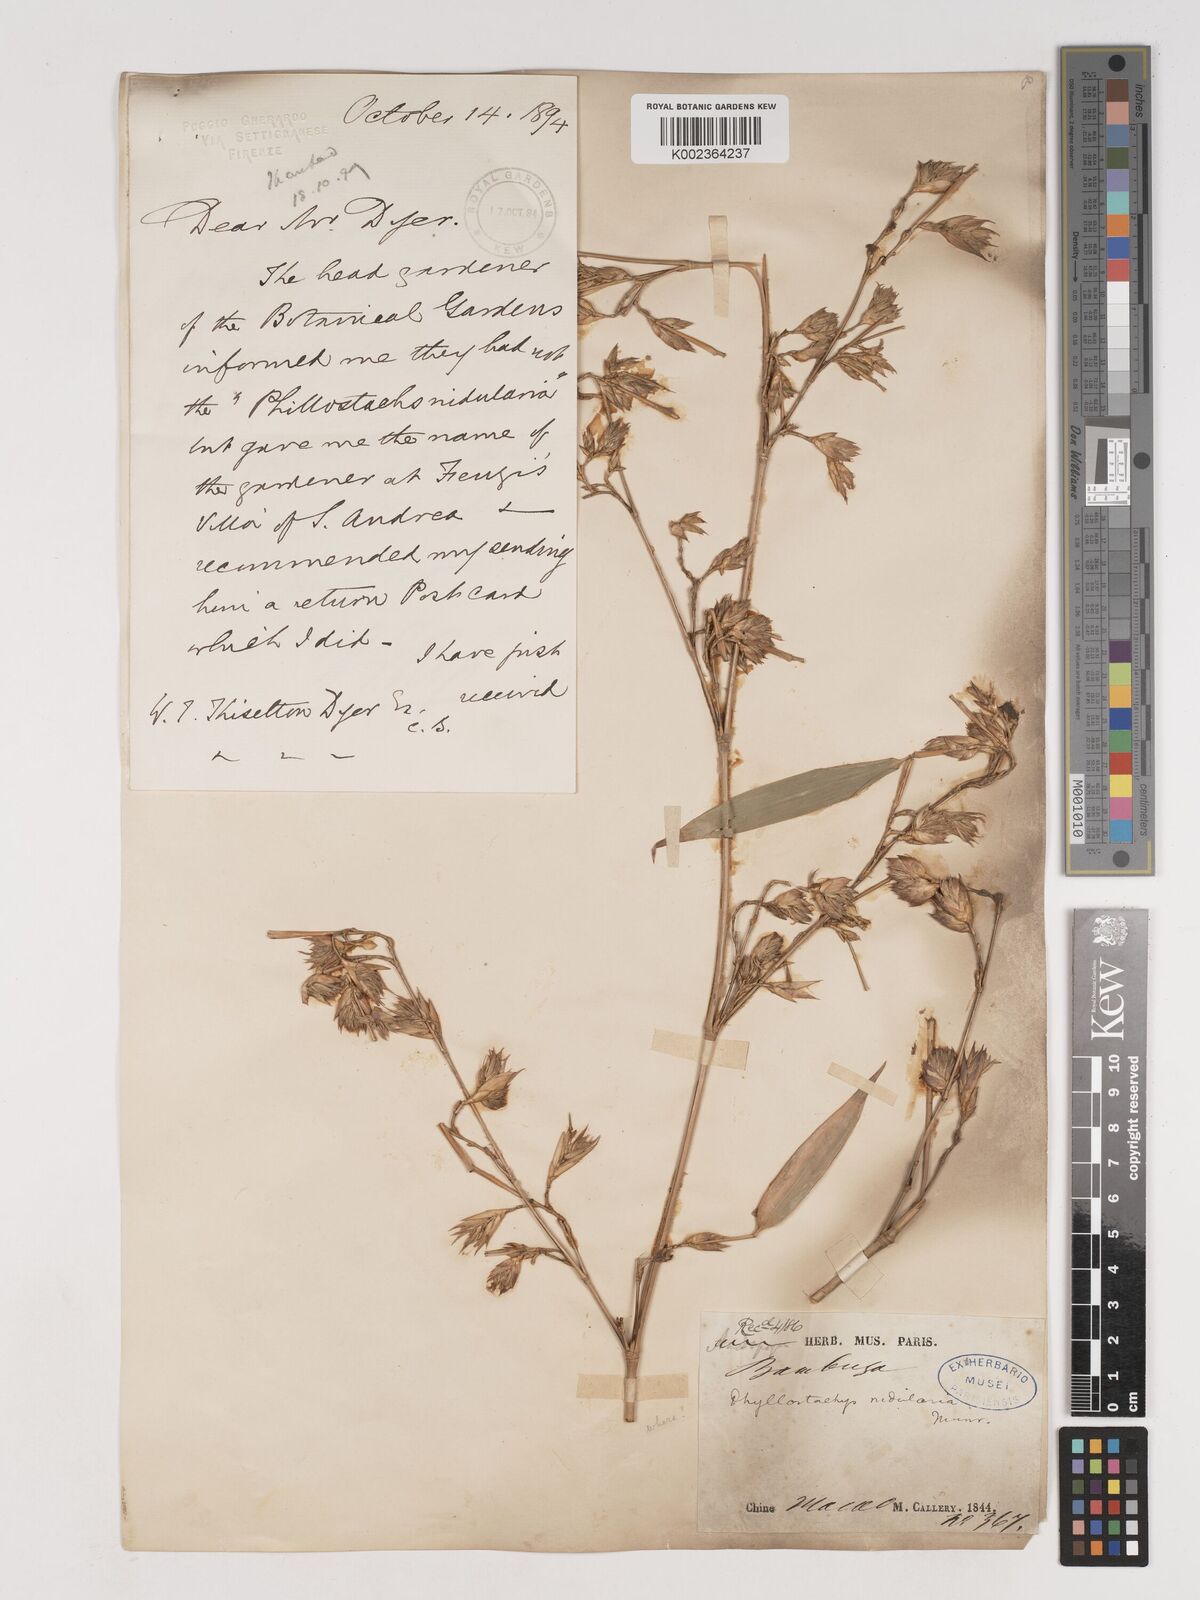 ROYAL BOTANIC GARDENS KEW
K002364237
POGGIO GHERARDO
VIA SETTIGNANESE
FIRENZE
October 14. 1894
18.10.94
ROYAL GARDENS
17 OCT. 94
KEW
Dear Mr. Dyer.
The head gardener
of the Botanical Gardens
informed me they had not
the "Phillostachs nidularia"
but gave me the name of
the gardener at
Villa of S. Andrea &
recommended my sending
him a return Postcard
which I did - I have just
received
W. T. Thiselton Dyer Es.
" " "
Recd 4/86
HERB. MUS. PARIS.
Bambusa
EX HERBARIO
MUSEI
PARISIENSIS
Phyllostachys nidularia
Munr.
where?
Chine Macao M. CALLERY. 1844.
no 367.
inches
centimeters
Don Williams
M001010
Kew
Royal Botanic Gardens
0 1 2 3 4 5 6 7 8 9 10
copyright reserved